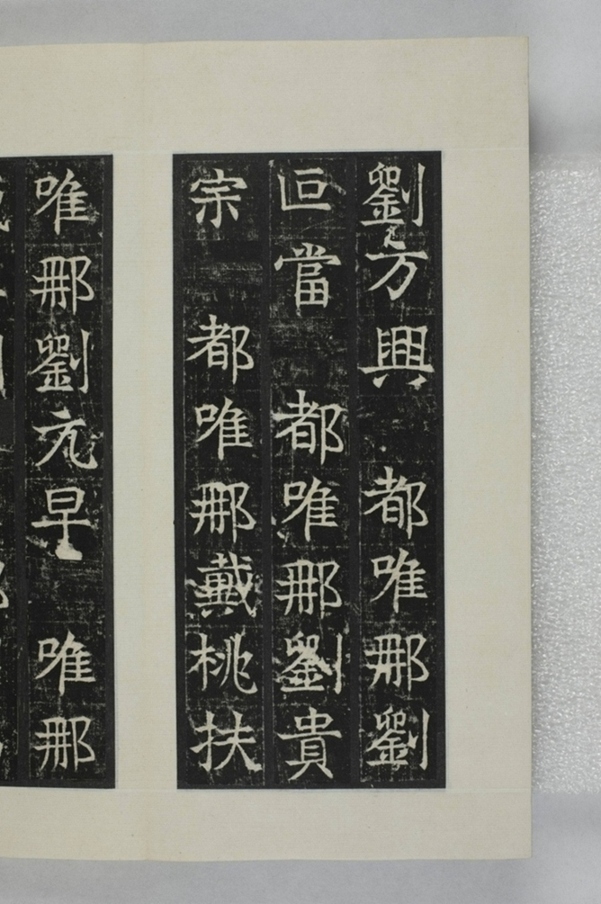 劉方興　都唯那劉
叵當　都唯那劉貴
宗　都唯那戴桃扶
唯那劉元早　唯那